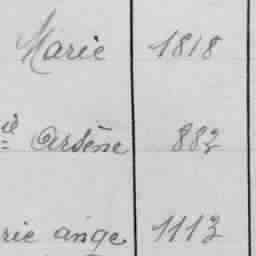 Marie 1818
Arsène 882
rie ange 1113